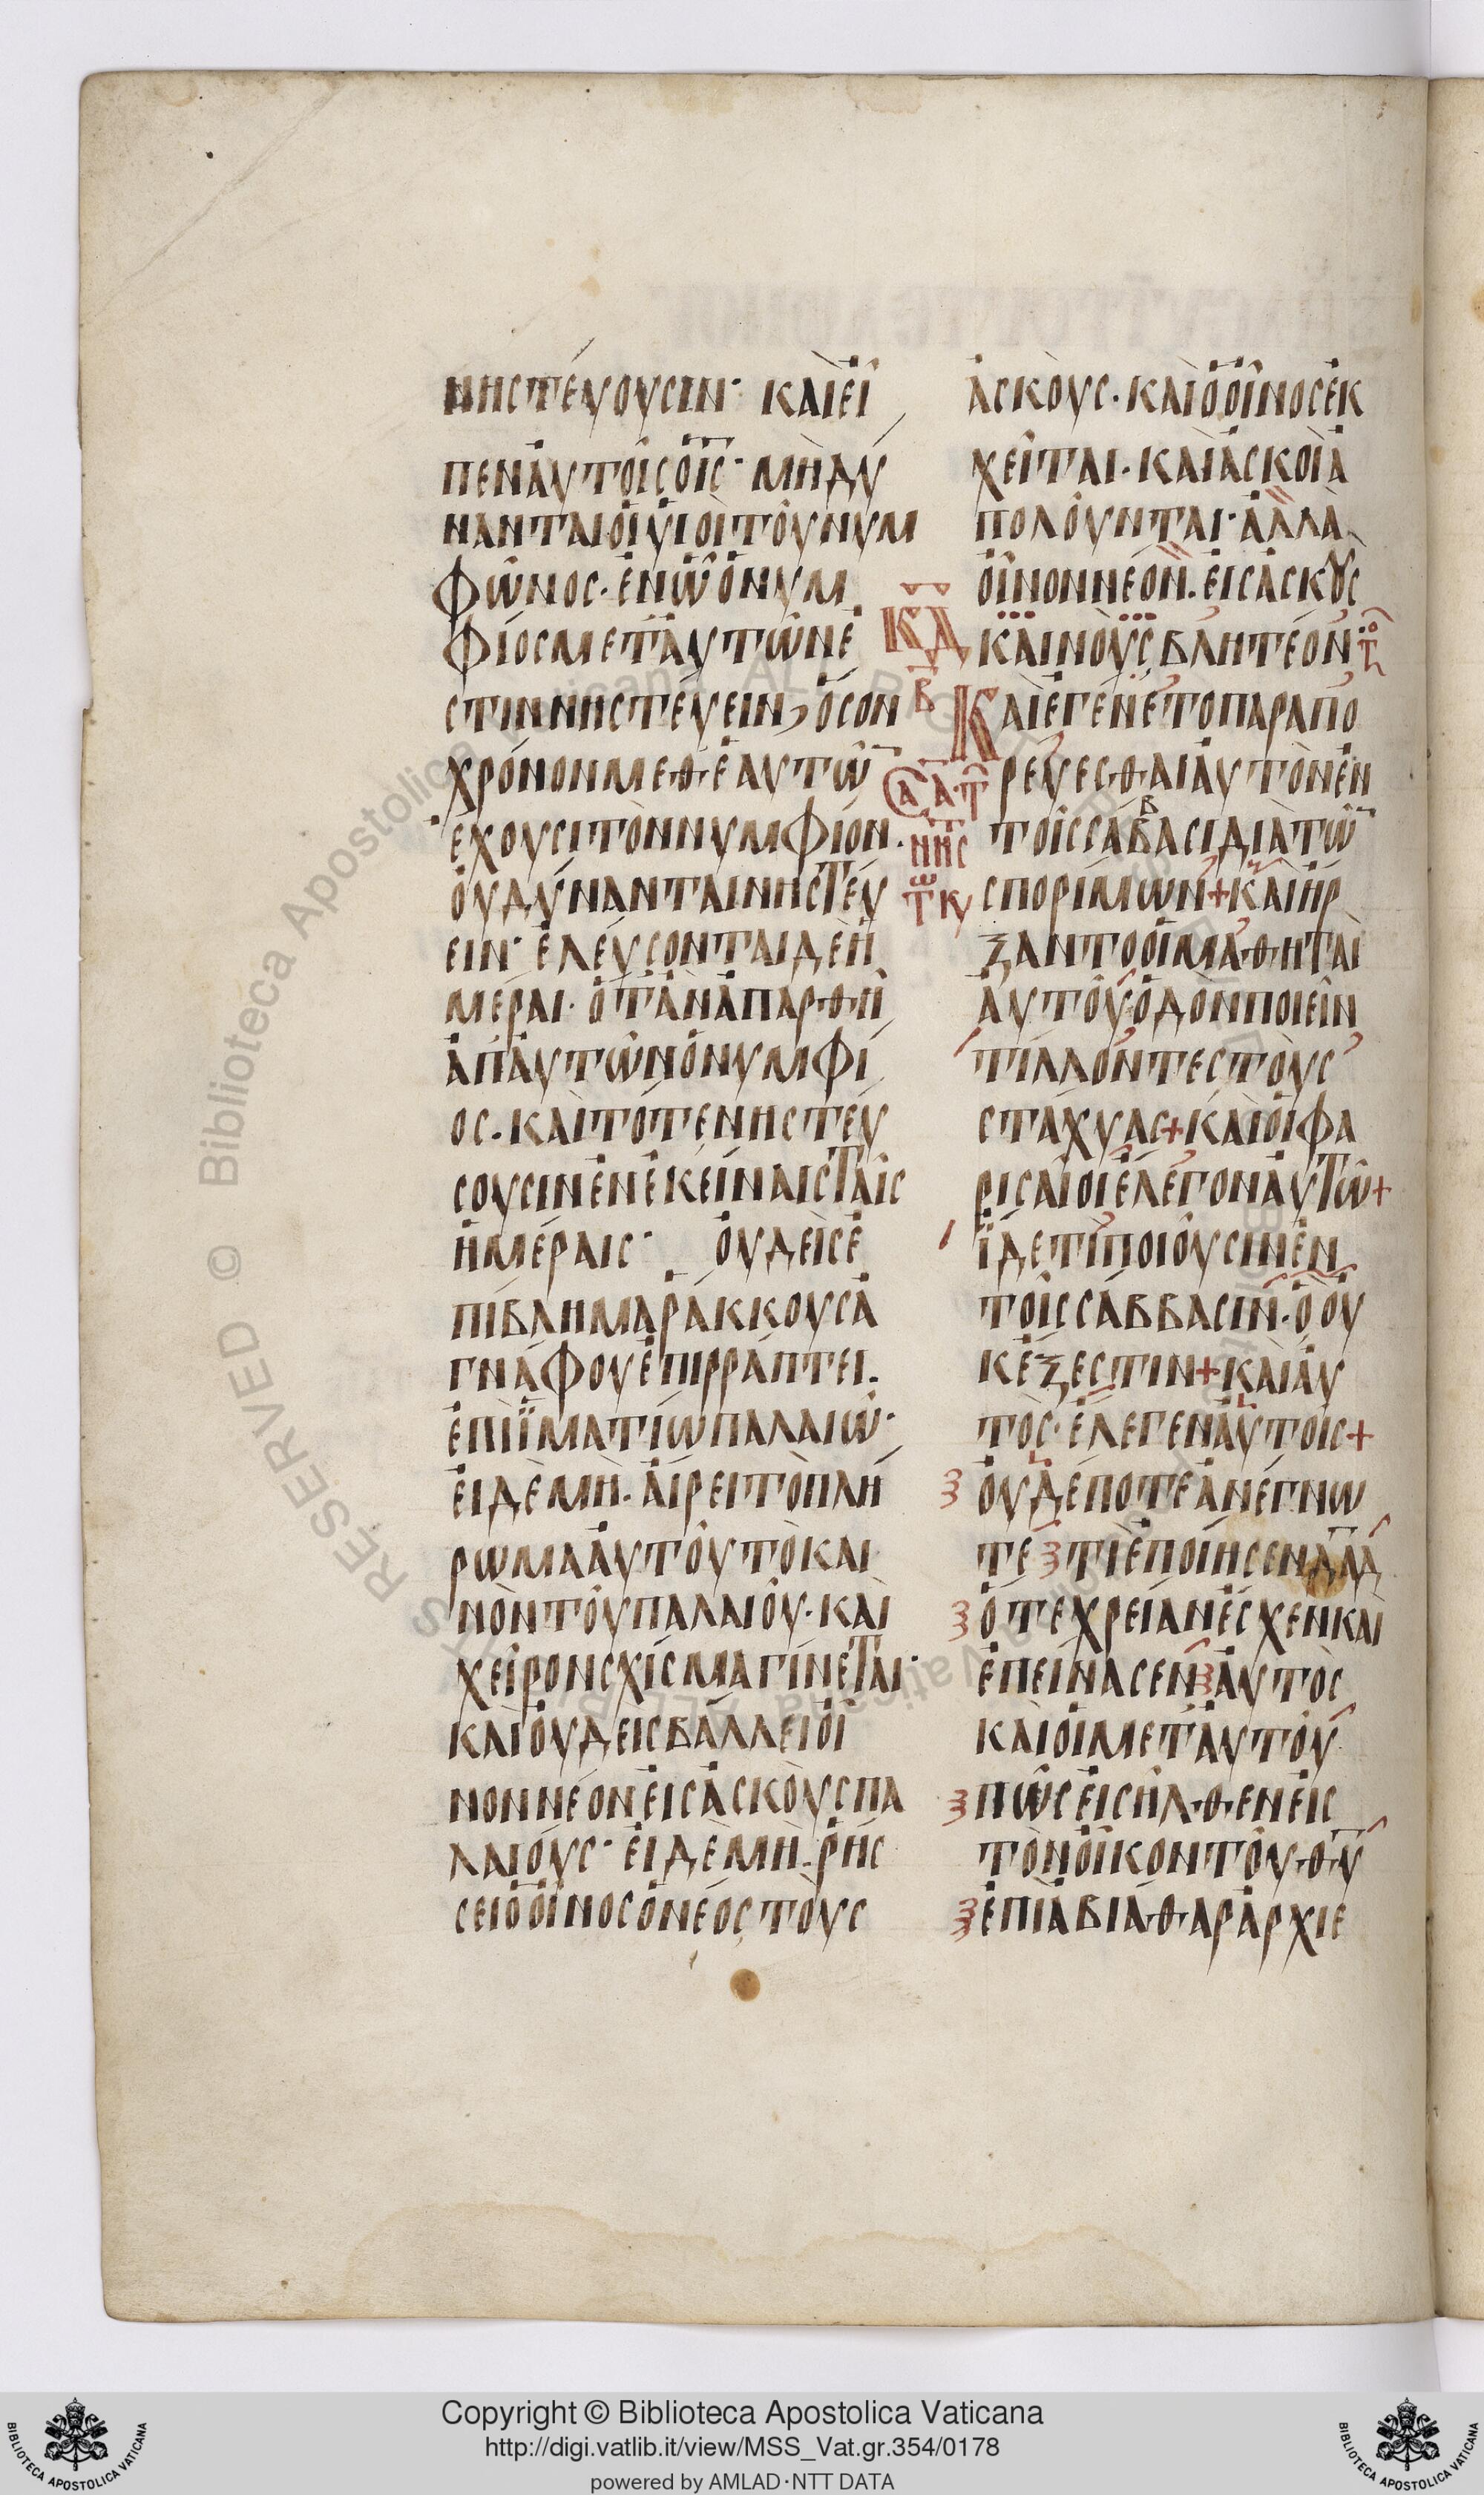 ΝΗϹΤΕΎΟΥϹΙΝ· ΚΑῚ ΕἾ
ΠΕΝ ΑΥΤΟΙϹ Ο ΙϹ· ΜΗ ΔΥ
ΝΑΝΤΑΙ ΟΙ ΥΙΟΙ ΤΟΥ ΝΥΜ
ΦΩΝΟϹ· ΕΝ Ω Ο ΝΥΜ
ΦΙΟϹ ΜΕΤ ΑΥΤΩΝ Ε
ϹΤΙΝ ΝΗϹΤΕΥΕΙΝ, ΟϹΟΝ
ΧΡΟΝΟΝ ΜΕΘ ΕΑΥΤΩ̅
ΕΧΟΥϹΙ ΤΟΝ ΝΥΜΦΙΟΝ·
ΟΥ ΔΥΝΑΝΤΑΙ ΝΗϹΤΕΥ
ΕΙΝ· ΕΛΕΥϹΟΝΤΑΙ ΔΕ Η
ΜΕΡΑΙ· ΟΤΑΝ ΑΠΑΡΘΗ
ΑΠ ΑΥΤΩΝ Ο ΝΥΜΦΙ
ΟϹ· ΚΑΙ ΤΟΤΕ ΝΗϹΤΕΥ
ϹΟΥϹΙΝ ΕΝ ΕΚΕΙΝΑΙϹ ΤΑΙϹ
ΗΜΕΡΑΙϹ· ΟΥΔΕΙϹ Ε
ΠΙΒΛΗΜΑ ΡΑΚΚΟΥϹ Α
ΓΝΑΦΟΥ ΕΠΙΡΡΑΠΤΕΙ·
ΕΠΙ ΪΜΑΤΙΩ ΠΑΛΑΙΩ·
ΕΙ ΔΕ ΜΗ· ΑΙΡΕΙ ΤΟ ΠΛΗ
ΡΩΜΑ ΑΥΤΟΥ ΤΟ ΚΑΙ
ΝΟΝ ΤΟΥ ΠΑΛΑΙΟΥ· ΚΑΙ
ΧΕΙΡΟΝ ϹΧΙϹΜΑ ΓΙΝΕΤΑΙ·
ΚΑΙ ΟΥΔΕΙϹ ΒΑΛΛΕΙ ΟΙ
ΝΟΝ ΝΕΟΝ ΕΙϹ ΑϹΚΟΥϹ ΠΑ
ΛΑΙΟΥϹ· ΕΙ ΔΕ ΜΗ· ΡΗϹ
ϹΕΙ Ο ΟΙΝΟϹ Ο ΝΕΟϹ ΤΟΥϹ
ΑϹΚΟΥϹ· ΚΑΙ Ο ΟΙΝΟϹ ΕΚ
ΧΕΙΤΑΙ· ΚΑΙ ΑϹΚΟΙ Α
ΠΟΛΟΥΝΤΑΙ· ΑΛΛΑ
ΟΙΝΟΝ ΝΕΟΝ· ΕΙϹ ΑϹΚΟΥϹ
ΚΑΙΝΟΥϹ ΒΛΗΤΕΟΝ
ΚΔ
Β
ϹΑ· Τ
ΝΗϹ
Τ Κυ
ΚΑΙ ΕΓΕΝΕΤΟ ΠΑΡΑΠΟ
ΡΕΥΕϹΘΑΙ ΑΥΤΟΝ ΕΝ
ΤΟΙϹ ϹΑΒΒΑϹΙ ΔΙΑ ΤΩ̅
ϹΠΟΡΙΜΩΝ + ΚΑΙ ΗΡ
ΞΑΝΤΟ ΟΙ ΜΑΘΗΤΑΙ
ΑΥΤΟΥ ΟΔΟΝ ΠΟΙΕΙΝ
ΤΙΛΛΟΝΤΕϹ ΤΟΥϹ
ϹΤΑΧΥΑϹ + ΚΑΙ ΟΙ ΦΑ
ΡΙϹΑΙΟΙ ΕΛΕΓΟΝ ΑΥΤΩ +
ΪΔΕ ΤΙ ΠΟΙΟΥϹΙΝ ΕΝ
ΤΟΙϹ ϹΑΒΒΑϹΙΝ· Ο ΟΥ
Κ ΕΞΕϹΤΙΝ + ΚΑΙ ΑΥ
ΤΟϹ· ΕΛΕΓΕΝ ΑΥΤΟΙϹ +
ΟΥΔΕΠΟΤΕ ΑΝΕΓΝΩ
ΤΕ ΤΙ ΕΠΟΙΗϹΕΝ ΔΑΔ
ΟΤΕ ΧΡΕΙΑΝ ΕϹΧΕΝ ΚΑΙ
ΕΠΕΙΝΑϹΕΝ ΑΥΤΟϹ
ΚΑΙ ΟΙ ΜΕΤ ΑΥΤΟΥ
ΠΩϹ ΕΙϹΗΛΘΕΝ ΕΙϹ
ΤΟΝ ΟΙΚΟΝ ΤΟΥ ΘΥ
ΕΠΙ ΑΒΙΑΘΑΡ ΑΡΧΙΕ
© Biblioteca Apostolica Vaticana ALL RIGHTS RESERVED
Copyright © Biblioteca Apostolica Vaticana
http://digi.vatlib.it/view/MSS_Vat.gr.354/0178
powered by AMLAD·NTT DATA
BIBLIOTECA APOSTOLICA VATICANA
BIBLIOTECA APOSTOLICA VATICANA